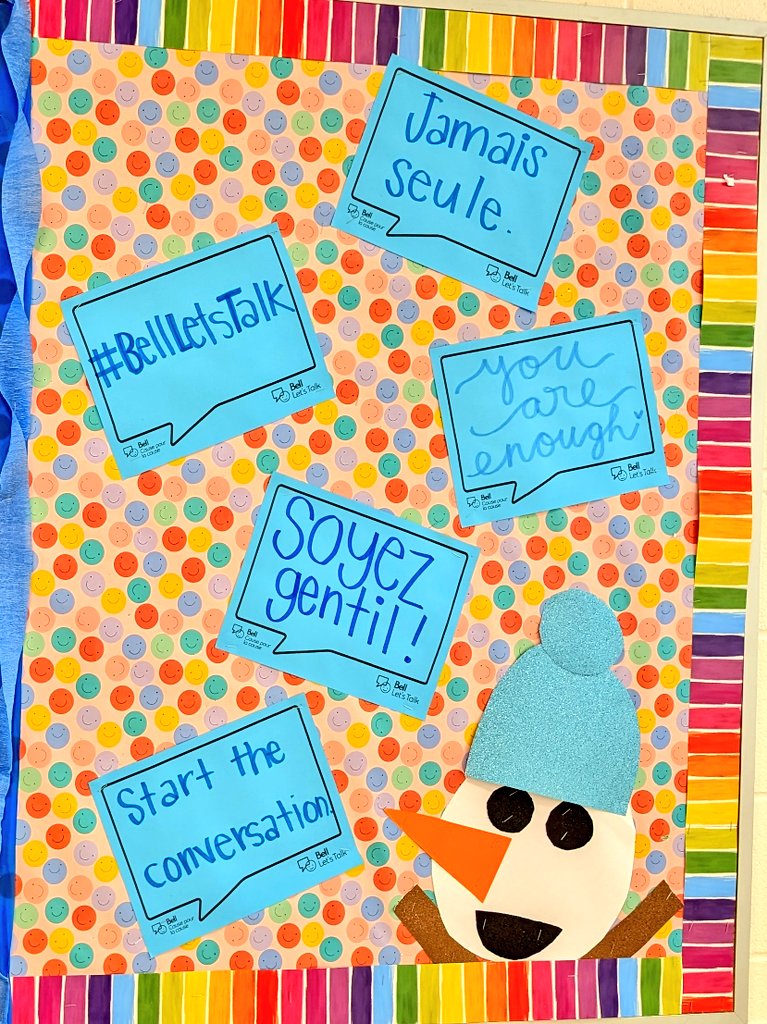 Jamais
seule.
Bell
Cause pour
la cause
Bell
Let's Talk
#BellLetsTalk
Bell
Cause pour
la cause
Bell
Let's Talk
you
are
enough
Bell
Cause pour
la cause
Bell
Let's Talk
Soyez
gentil!
Bell
Cause pour
la cause
Bell
Let's Talk
Start the
conversation.
Bell
Cause pour
la cause
Bell
Let's Talk